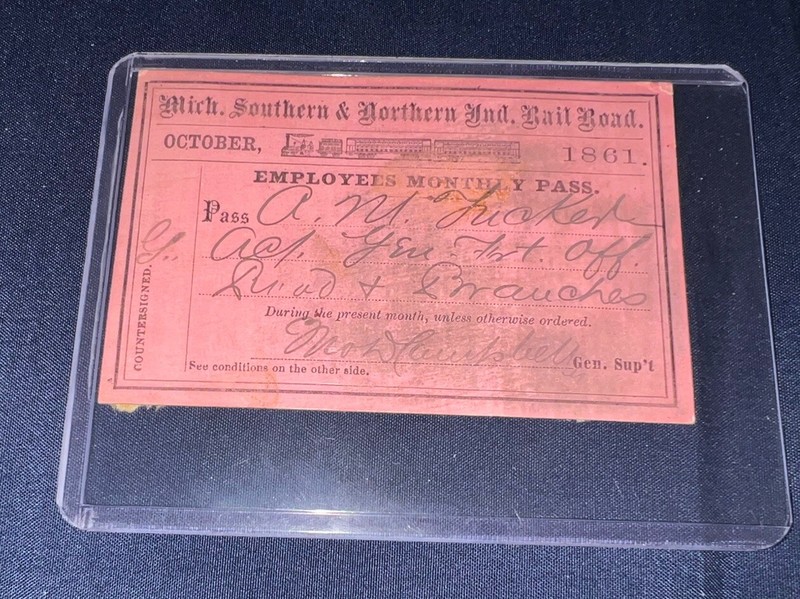 Mich. Southern & Northern Ind. Rail Road.
OCTOBER, 1861.
EMPLOYEES MONTHLY PASS.
Pass A. M. Tucker
Act. Gen. Frt. Off.
Road & Branches
During the present month, unless otherwise ordered.
Campbell Gen. Sup't
See conditions on the other side.
COUNTERSIGNED.